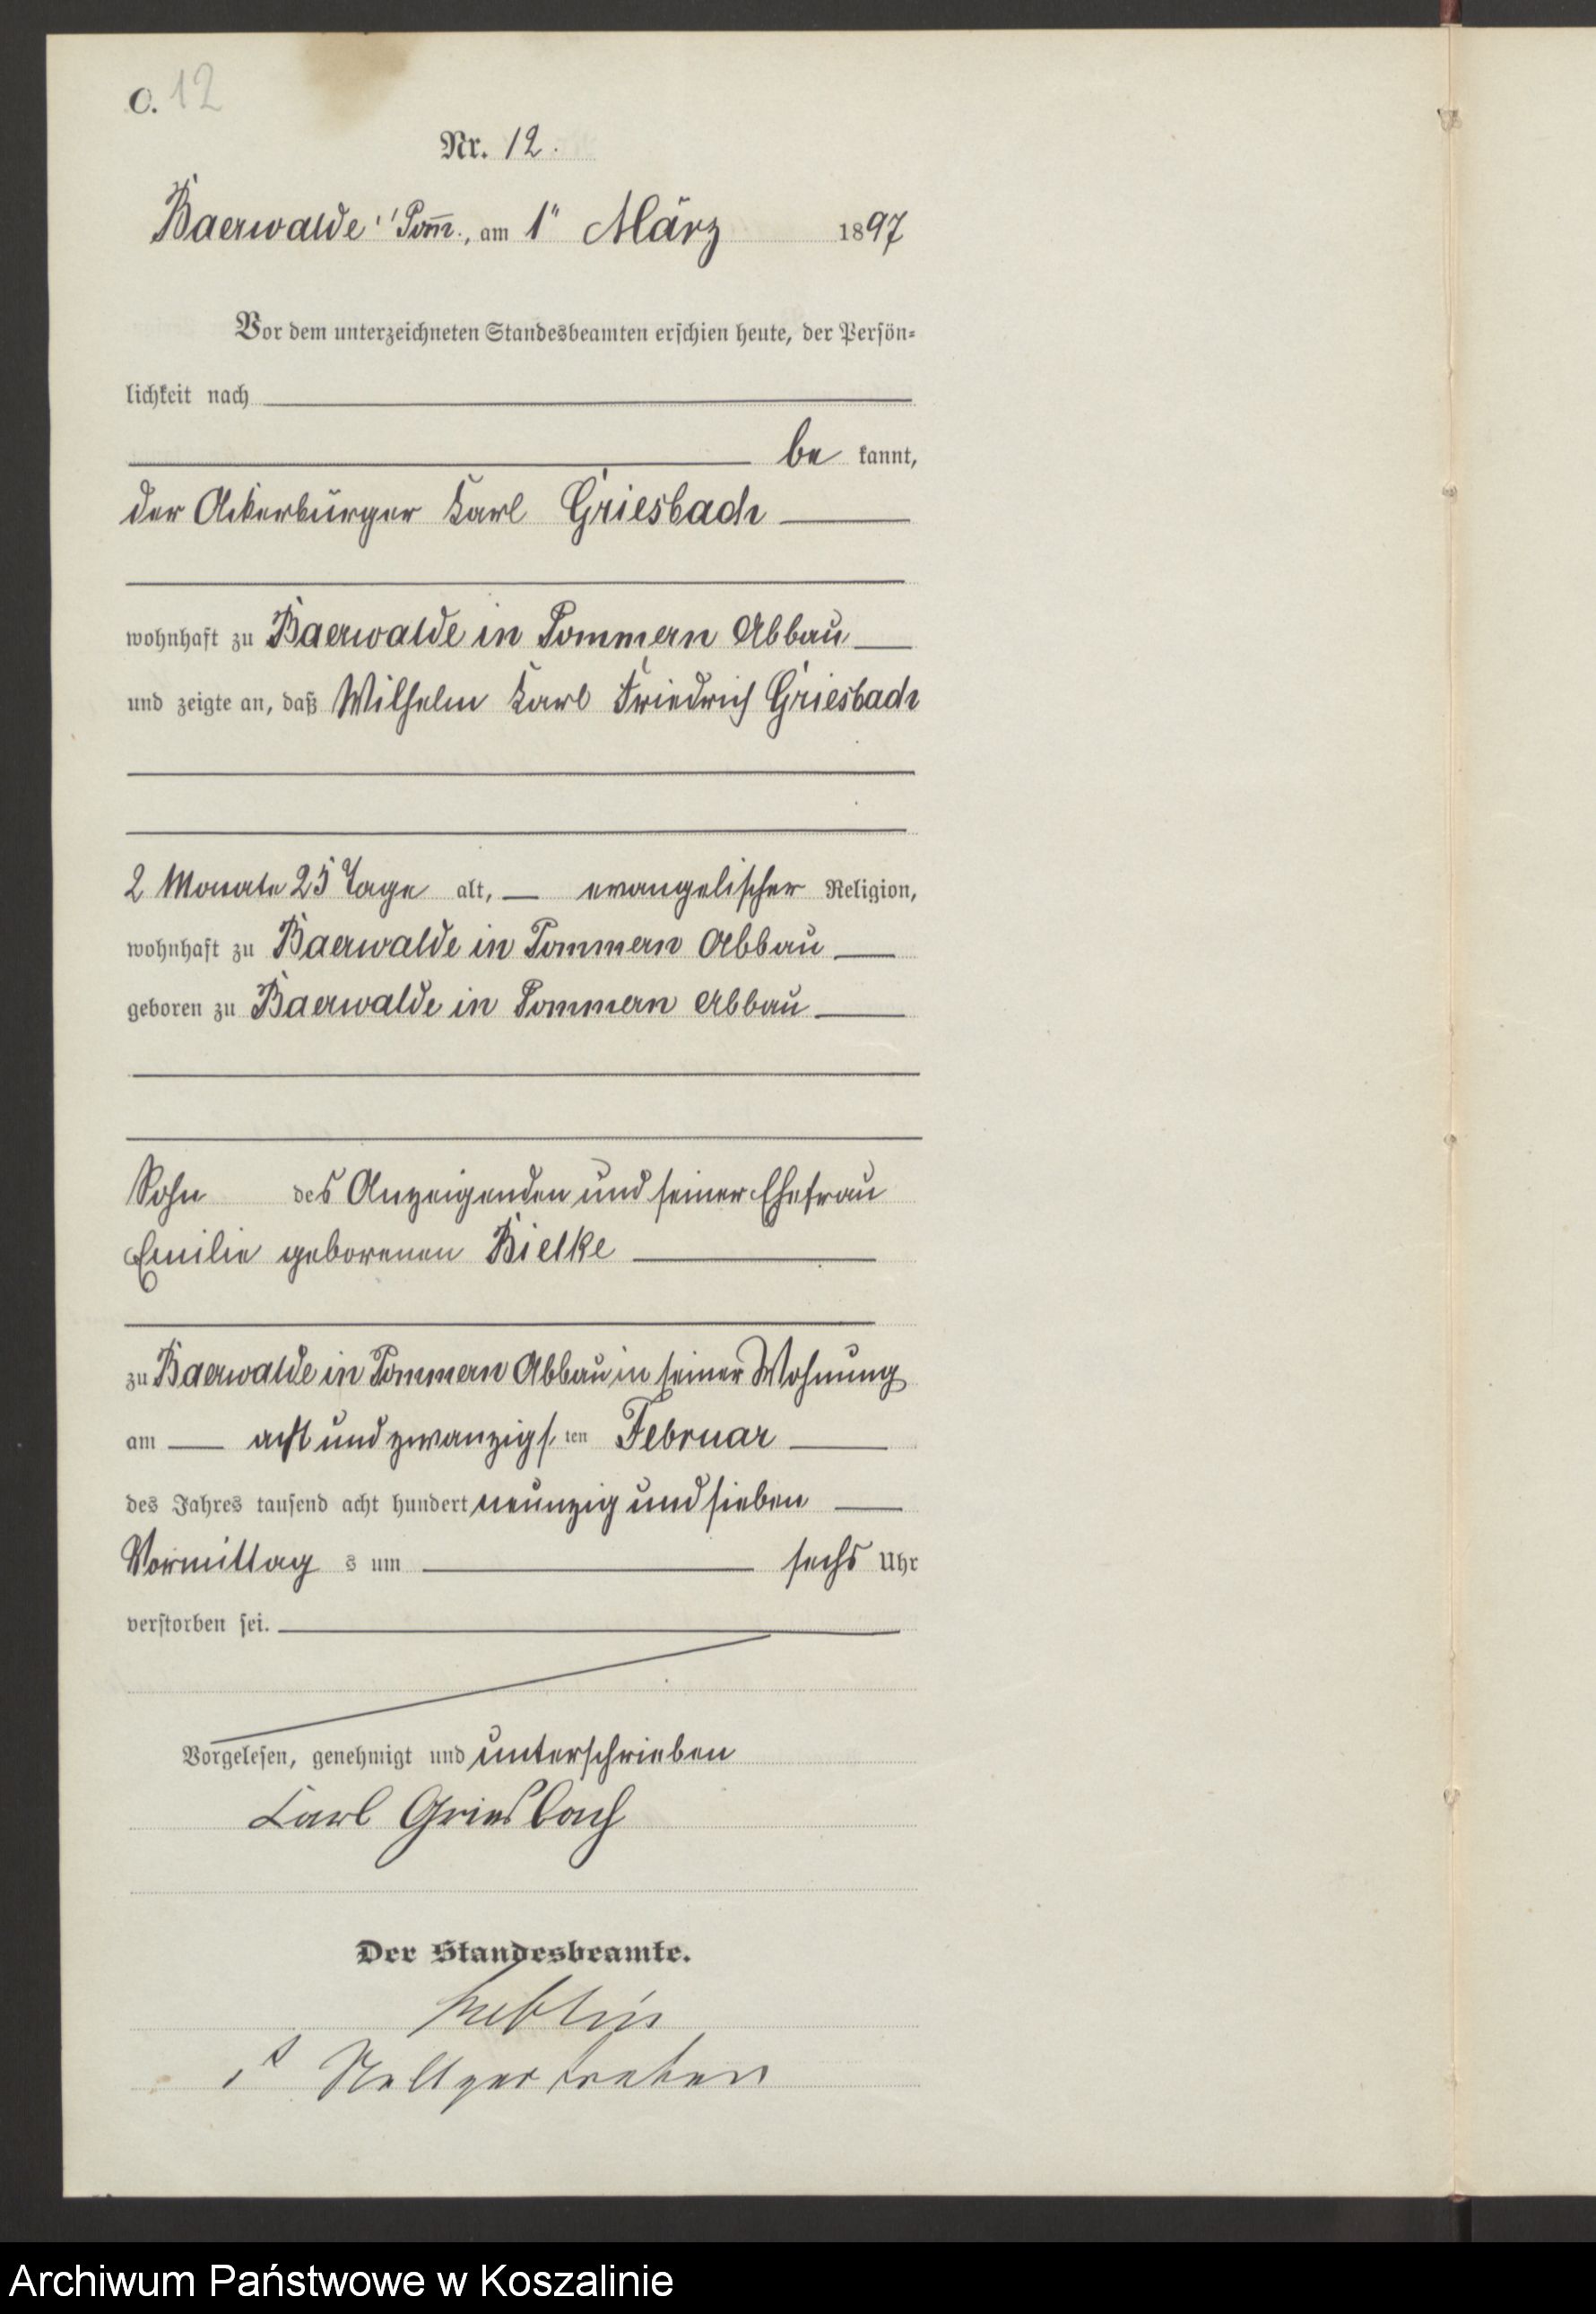 C. 12
Nr. 12.
Baerwalde i/Pom̅., am 1" März 1897
Vor dem unterzeichneten Standesbeamten erschien heute, der Persön-
lichkeit nach
be kannt,
der Ackerbürger Karl Griesbach
wohnhaft zu Baerwalde in Pommern Abbau
und zeigte an, daß Wilhelm Karl Friedrich Griesbach
2 Monate 25 Tage alt, evangelischer Religion,
wohnhaft zu Baerwalde in Pommern Abbau
geboren zu Baerwalde in Pommern Abbau
Sohn des Anzeigenden und seiner Ehefrau
Emilie geborenen Bielke
zu Baerwalde in Pommern Abbau in seiner Wohnung
am acht und zwanzigsten Februar
des Jahres tausend acht hundert neunzig und sieben
Vormittags um sechs Uhr
verstorben sei.
Vorgelesen, genehmigt und unterschrieben
Karl Griesbach
Der Standesbeamte.
Archiwum Państwowe w Koszalinie